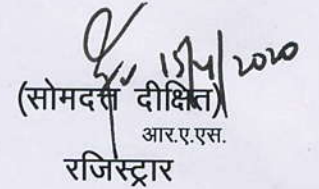 15/4/2020
(सोमदत्त दीक्षित)
आर.ए.एस.
रजिस्ट्रार